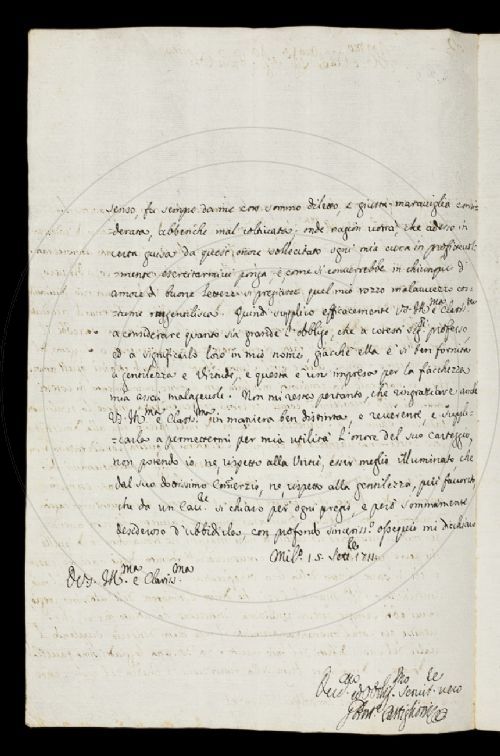 senso, fu sempre da me con sommo diletto, e giusta maraviglia consi-
=derata, abbenche mal coltivata; onde ragion vorrà che adesso in
certa guisa da questo onore sollecitato ogni mia cura in profittevol-
=mente esercitarmivi ponga e come si converrebbe in chiunque d'
amore di buone lettere si pregiasse quel mio rozzo malavvezzo cos-
tume ringentilisca. Quindi supplico efficacemente V.S. Ill.ma e Clariss.ma
a considerare quanto sia grande l'obbligo, che a cotesti Sig.ri professo,
ed a significarlo loro in mio nome, giacchè ella è sì ben fornita
di gentilezza e Virtude, e questa è un impresa per la fiacchezza
mia assai malagevole. Non mi resta pertanto, che ringraziare anche
V.S. Ill.ma e Clariss.ma in maniera ben distinta, e reverente, e suppli-
=carla a permettermi per mia utilità l'onore del suo Carteggio,
non potendo io, ne rispetto alla Virtù, esser meglio illuminato che
dal suo dottissimo Comerzio, ne rispetto alla gentilezza, più favorito
che da un Cav.re sì chiaro per ogni pregio, e però sommamente
desideroso d'ubbidirla, con profondo sinceriss.o ossequio mi dichiaro
Mil.o 15. Sett.re 1711.
Di V.S. Ill.ma e Clariss.ma
Dev.mo ed Obblig.mo Servit.re vero
Castiglione